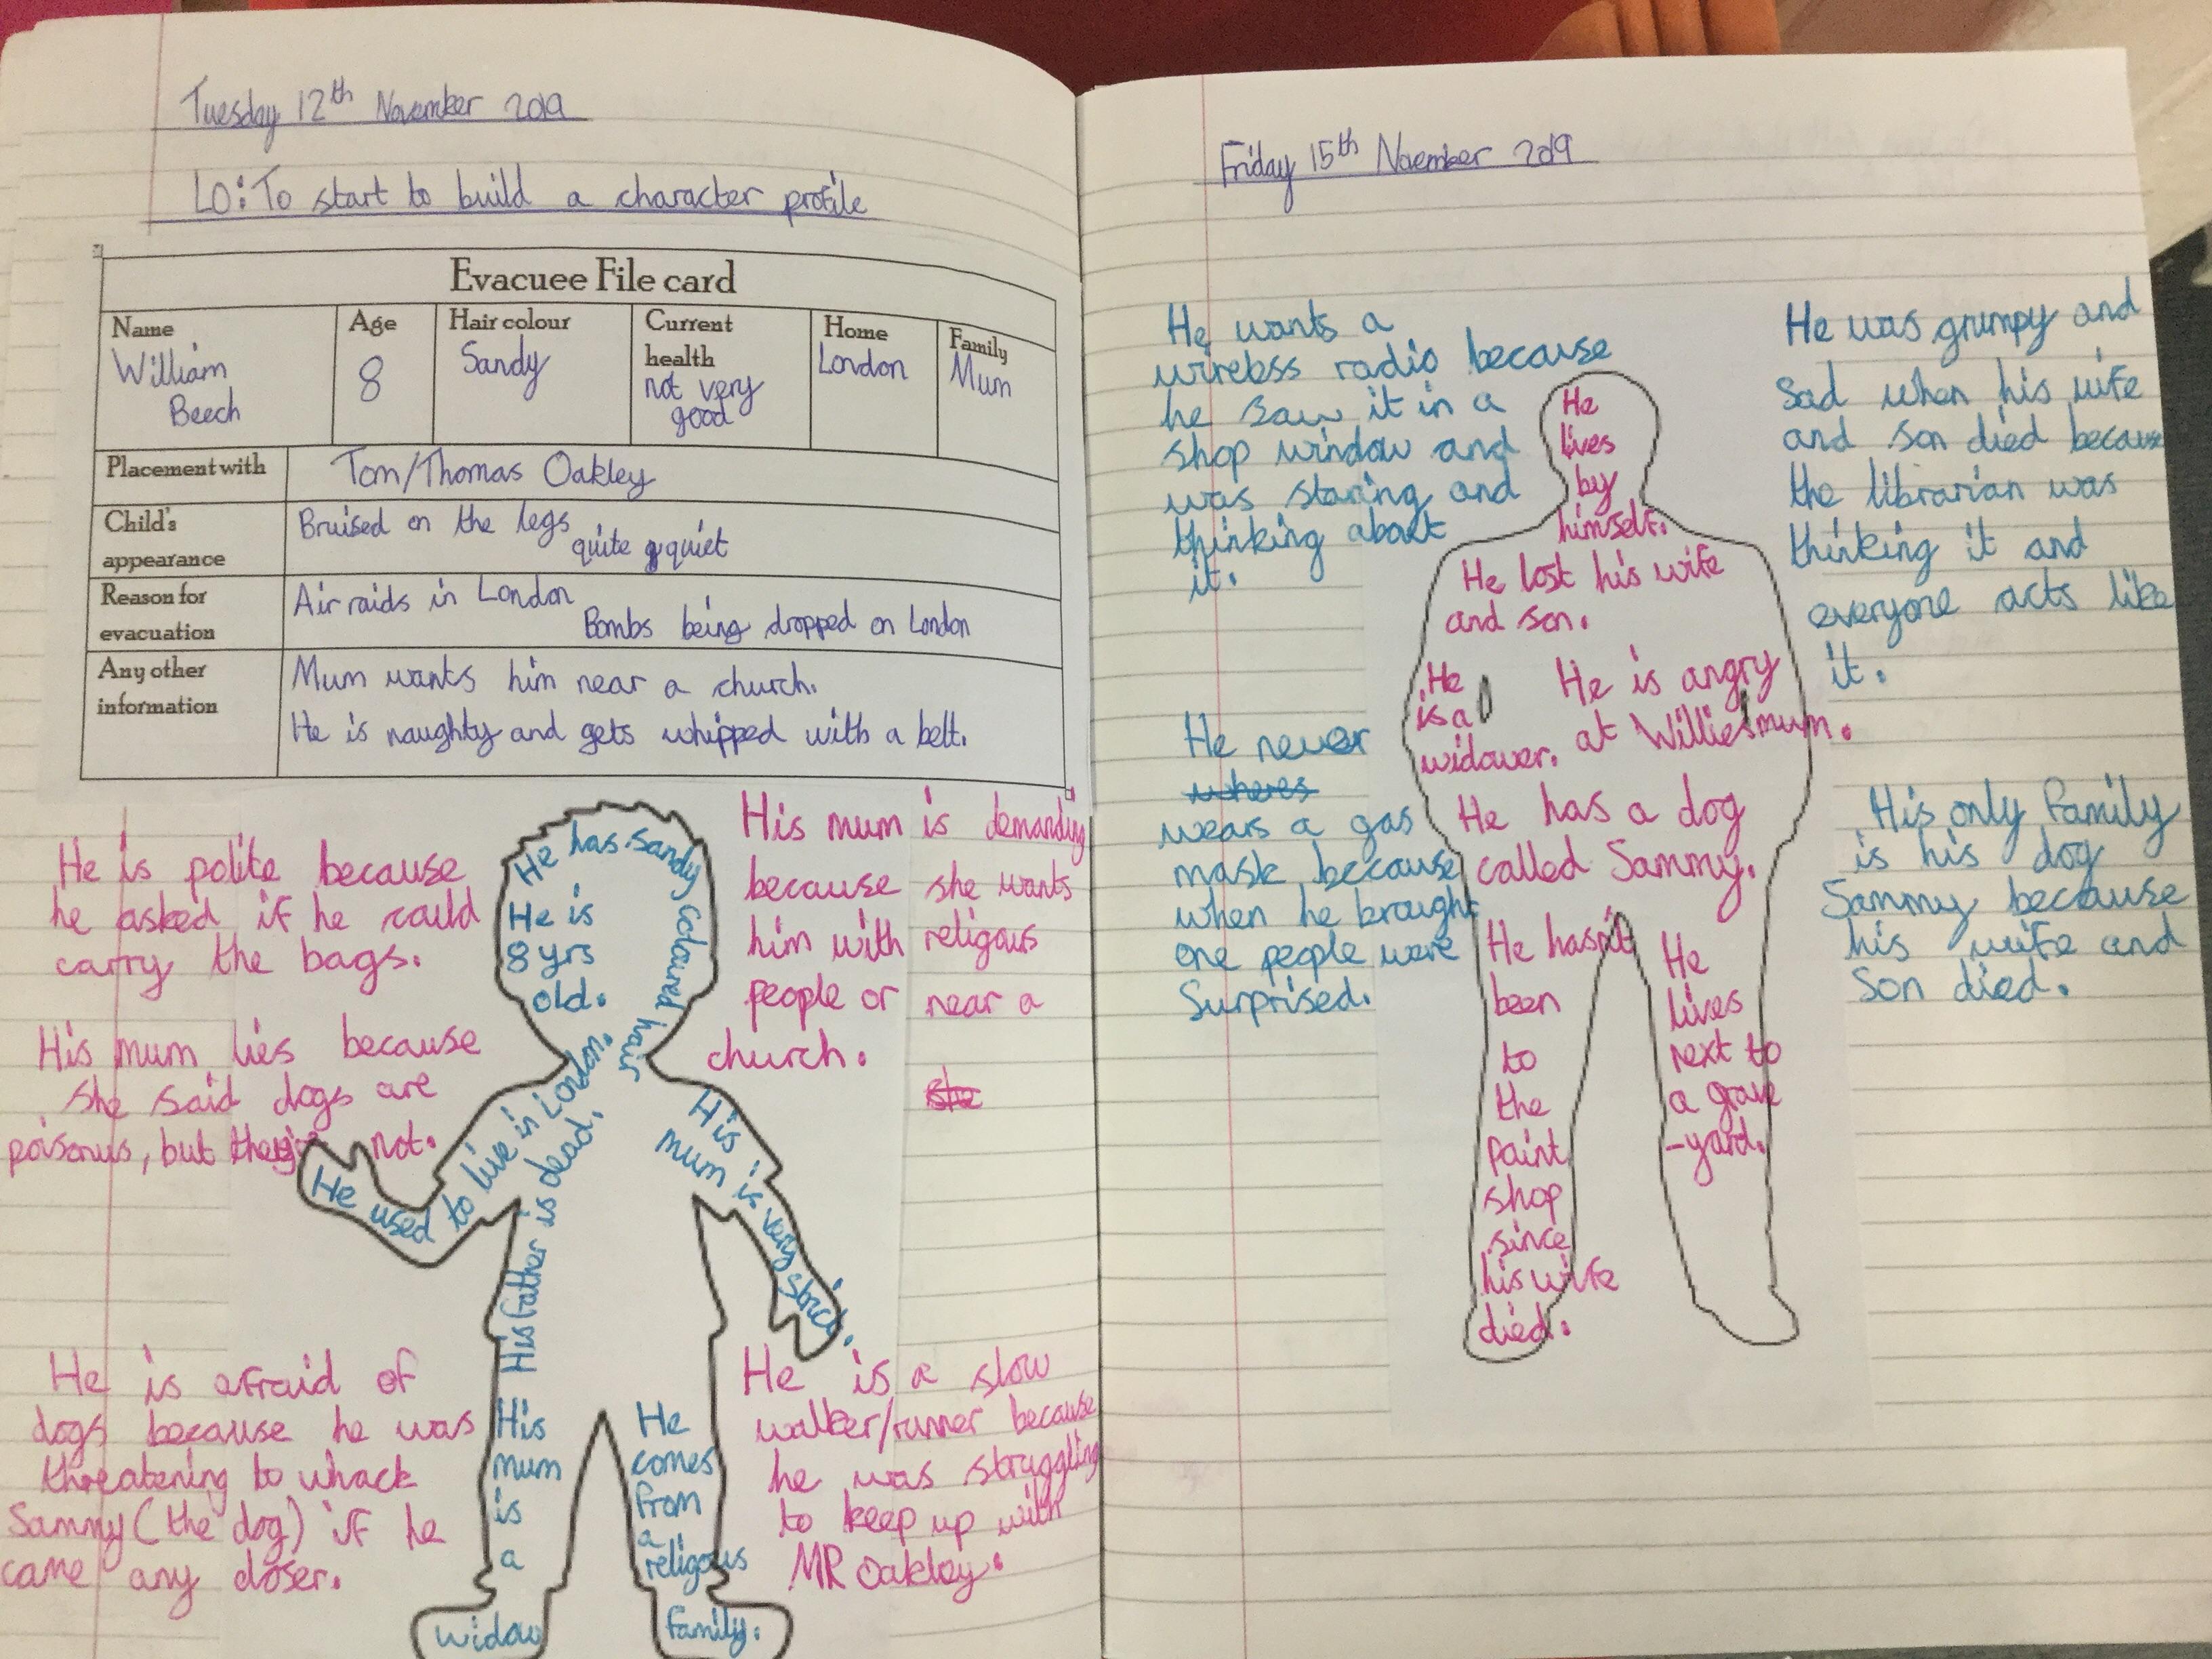 Tuesday 12th November 2019
LO: To start to build a character profile
Evacuee File card
Name
William
Beech
Age
8
Hair colour
Sandy
Current
health
not very
good
Home
London
Family
Mum
Placement with
Tom/Thomas Oakley
Child's
appearance
Bruised on the legs
quite quiet
Reason for
evacuation
Air raids in London
Bombs being dropped on London
Any other
information
Mum wants him near a church.
He is naughty and gets whipped with a belt.
He is polite because
he asked if he could
carry the bags.
His mum lies because
she said dogs are
poisonus, but not.
He is afraid of
dogs because he was
threatening to whack
Sammy (the dog) if he
came any closer.
He has sandy coloured hair
He is
8 yrs
old.
He used to live in London.
His father is dead.
His
mum is very strict.
His
mum
is
a
widow
He
comes
from
a
religous
family.
His mum is demanding
because she wants
him with religous
people or near a
church.
she
He is a slow
walker/runner because
he was struggling
to keep up with
MR Oakley.
Friday 15th November 2019
He wants a
wireless radio because
he saw it in a
shop window and
was staring and
thinking about
it.
He never
wheres
wears a gas
mask because
when he brought
one people were
Surprised.
He
lives
by
himself.
He lost his wife
and son.
He
is a
widower.
He is angry
at Willies mum.
He has a dog
called Sammy.
He hasn't
been
to
the
paint
shop
since
his wife
died.
He
lives
next to
a grave
-yard.
He was grumpy and
sad when his wife
and son died because
the librarian was
thinking it and
everyone acts like
it.
His only family
is his dog
Sammy because
his wife and
son died.